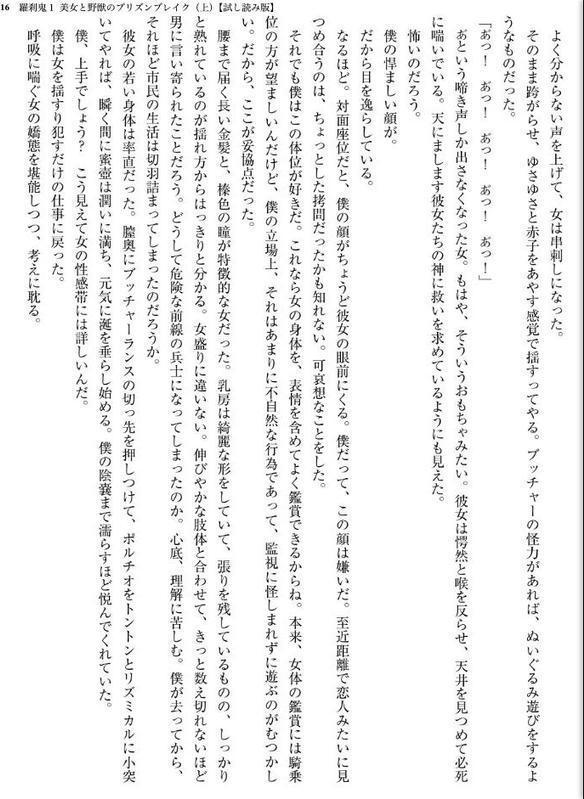 16　羅刹鬼1 美女と野獣のプリズンブレイク（上）【試し読み版】
よく分からない声を上げて、女は串刺しになった。
そのまま跨がらせ、ゆさゆさと赤子をあやす感覚で揺すってやる。ブッチャーの怪力があれば、ぬいぐるみ遊びをするよ
うなものだった。
「あっ！　あっ！　あっ！　あっ！　あっ！」
あという啼き声しか出さなくなった女。もはや、そういうおもちゃみたい。彼女は愕然と喉を反らせ、天井を見つめて必死
に喘いでいる。天にまします彼女たちの神に救いを求めているようにも見えた。
怖いのだろう。
僕の悍ましい顔が。
だから目を逸らしている。
なるほど。対面座位だと、僕の顔がちょうど彼女の眼前にくる。僕だって、この顔は嫌いだ。至近距離で恋人みたいに見
つめ合うのは、ちょっとした拷問だったかも知れない。可哀想なことをした。
それでも僕はこの体位が好きだ。これなら女の身体を、表情を含めてよく鑑賞できるからね。本来、女体の鑑賞には騎乗
位の方が望ましいんだけど、僕の立場上、それはあまりに不自然な行為であって、監視に怪しまれずに遊ぶのがむつかし
い。だから、ここが妥協点だった。
腰まで届く長い金髪と、榛色の瞳が特徴的な女だった。乳房は綺麗な形をしていて、張りを残しているものの、しっかり
と熟れているのが揺れ方からはっきりと分かる。女盛りに違いない。伸びやかな肢体と合わせて、きっと数え切れないほど
男に言い寄られたことだろう。どうして危険な前線の兵士になってしまったのか。心底、理解に苦しむ。僕が去ってから、
それほど市民の生活は切羽詰まってしまったのだろうか。
彼女の若い身体は率直だった。膣奥にブッチャーランスの切っ先を押しつけて、ポルチオをトントンとリズミカルに小突
いてやれば、瞬く間に蜜壺は潤いに満ち、元気に涎を垂らし始める。僕の陰嚢まで濡らすほど悦んでくれていた。
僕、上手でしょう？　こう見えて女の性感帯には詳しいんだ。
僕は女を揺すり犯すだけの仕事に戻った。
呼吸に喘ぐ女の嬌態を堪能しつつ、考えに耽る。